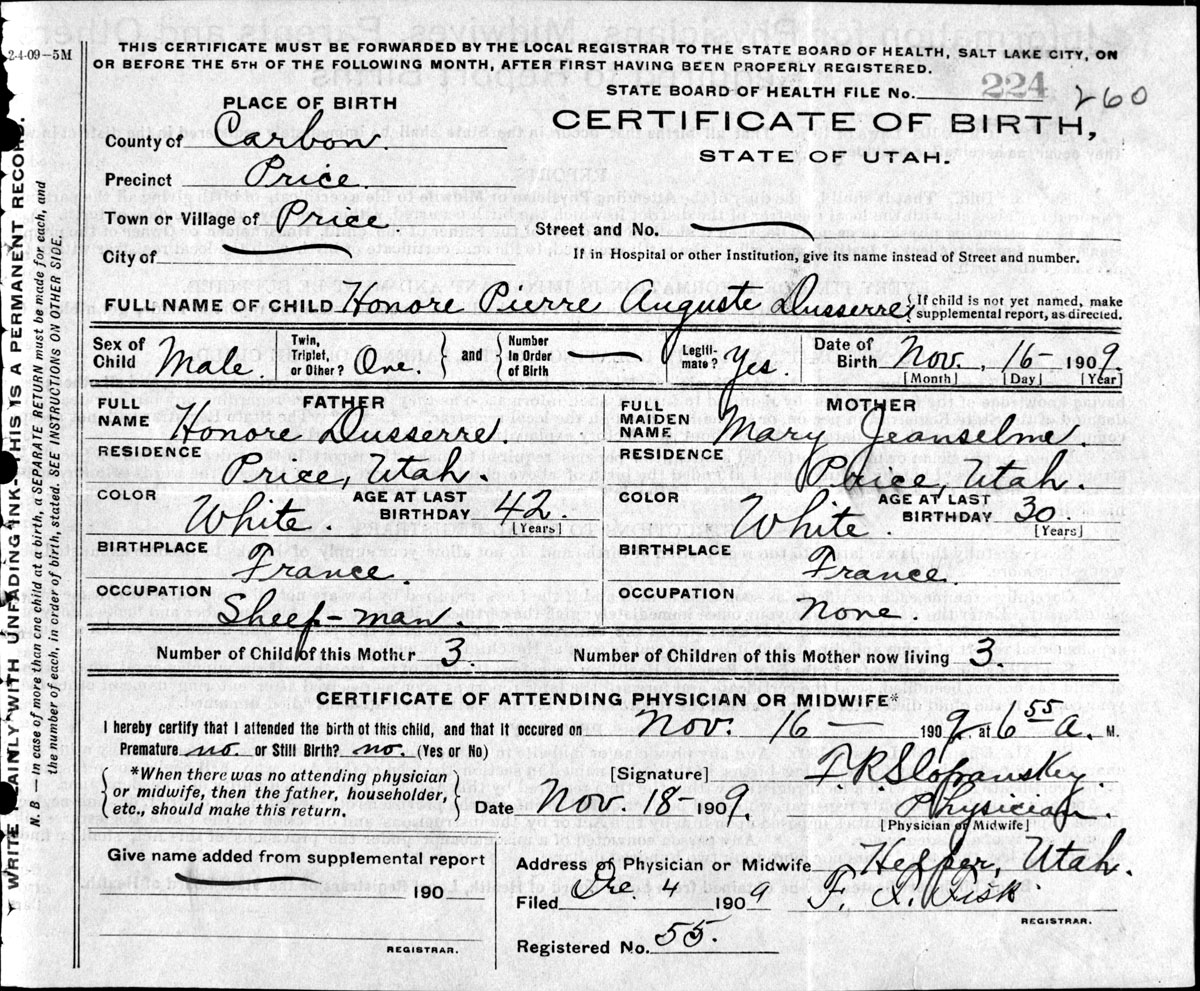 2-4-09—5M
THIS CERTIFICATE MUST BE FORWARDED BY THE LOCAL REGISTRAR TO THE STATE BOARD OF HEALTH, SALT LAKE CITY, ON
OR BEFORE THE 5TH OF THE FOLLOWING MONTH, AFTER FIRST HAVING BEEN PROPERLY REGISTERED.
STATE BOARD OF HEALTH FILE No. 224 260
PLACE OF BIRTH
CERTIFICATE OF BIRTH,
STATE OF UTAH.
County of Carbon.
Precinct Price.
Town or Village of Price
Street and No.
City of
If in Hospital or other Institution, give its name instead of Street and number.
FULL NAME OF CHILD Honore Pierre Auguste Dusserre {If child is not yet named, make
supplemental report, as directed.
Sex of Child Male. Twin, Triplet, or Other? One. } and { Number in Order of Birth — Legiti-mate? Yes. Date of Birth Nov. 16 - 1909.
[Month] [Day] [Year]
FATHER
FULL NAME Honore Dusserre.
RESIDENCE
Price, Utah.
COLOR White. AGE AT LAST BIRTHDAY 42
[Years]
BIRTHPLACE
France.
OCCUPATION
Sheep-man.
MOTHER
FULL MAIDEN NAME Mary Jeanselme.
RESIDENCE
Price, Utah.
COLOR White. AGE AT LAST BIRTHDAY 30.
[Years]
BIRTHPLACE
France.
OCCUPATION
None.
Number of Child of this Mother 3. Number of Children of this Mother now living 3.
CERTIFICATE OF ATTENDING PHYSICIAN OR MIDWIFE*
I hereby certify that I attended the birth of this child, and that it occured on Nov. 16 — 1909 at 6 55 a. M.
Premature no. or Still Birth? no. (Yes or No)
{*When there was no attending physician
or midwife, then the father, householder,
etc., should make this return.}
[Signature]
Date Nov. 18 1909.
Physician.
[Physician or Midwife]
Give name added from supplemental report
190
REGISTRAR.
Address of Physician or Midwife Helper, Utah.
Filed Dec. 4 1909 Fisk.
REGISTRAR.
Registered No. 55.
WRITE PLAINLY WITH UNFADING INK—THIS IS A PERMANENT RECORD.
N. B. — In case of more than one child at a birth, a SEPARATE RETURN must be made for each, and
the number of each, in order of birth, stated. SEE INSTRUCTIONS ON OTHER SIDE.